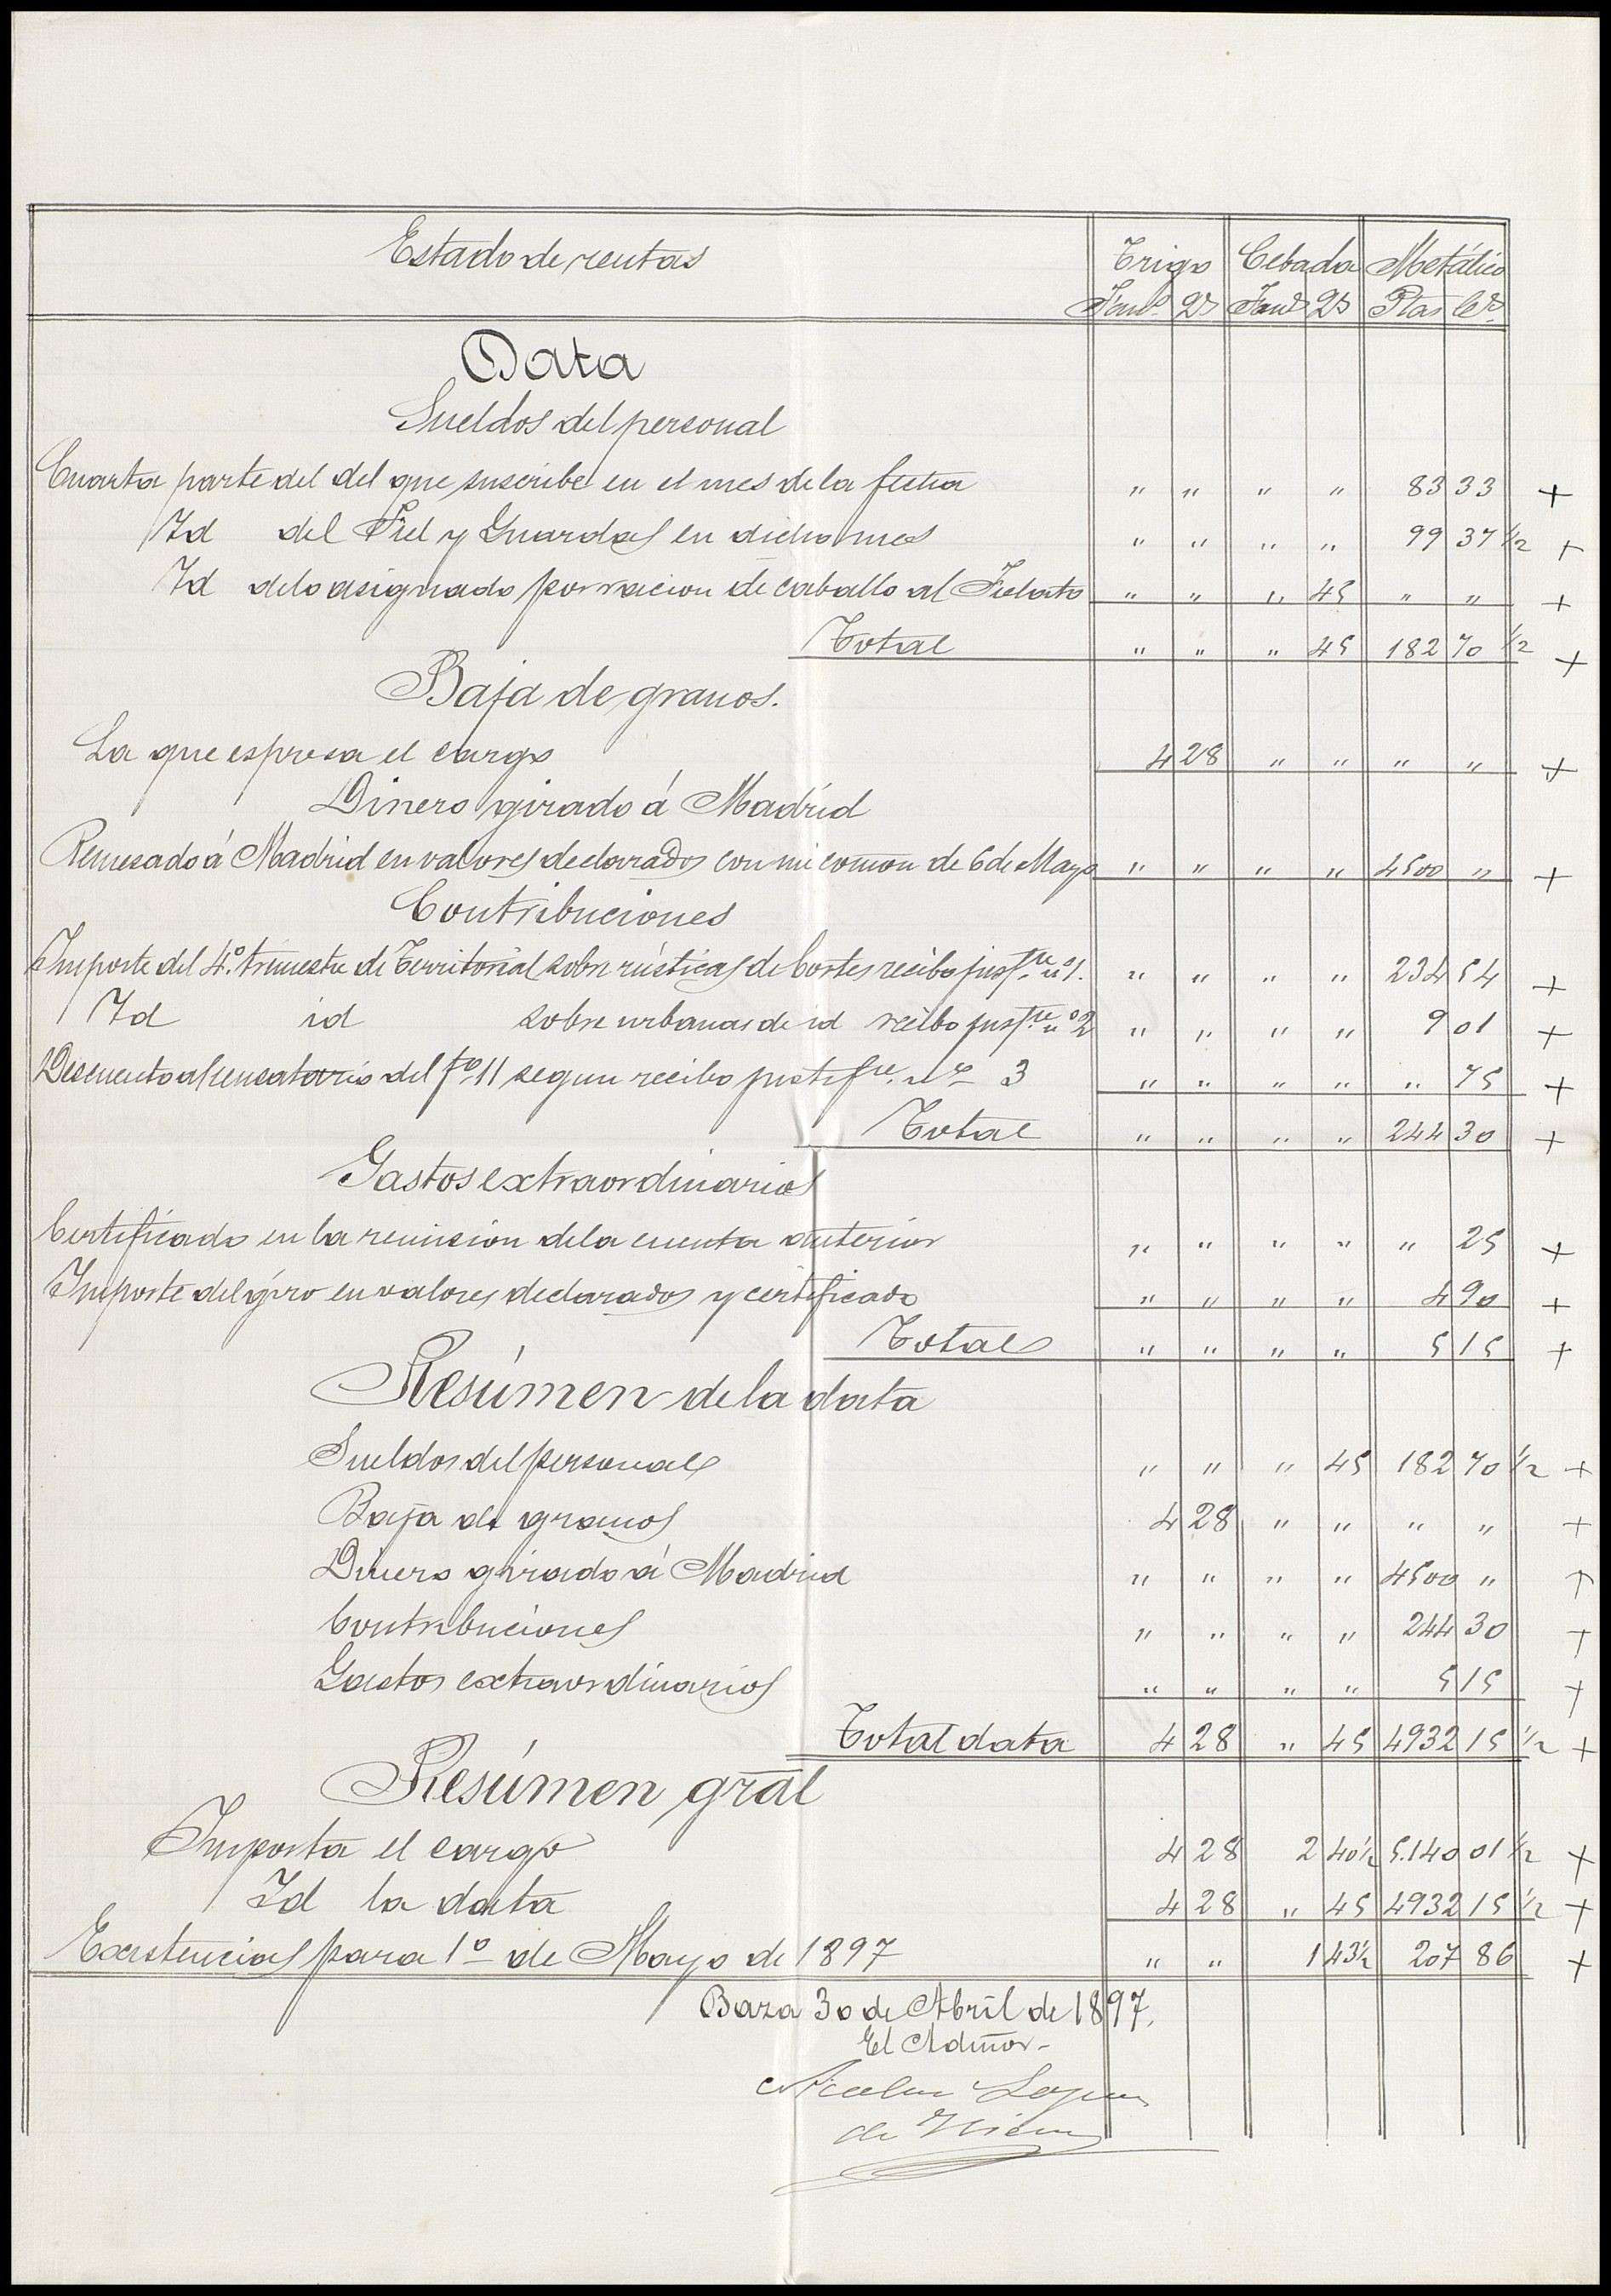 Estado de rentas Trigo Cebada Metálico
Fans. Qs Fans Qs Ptas Cs.
Data
Sueldos del personal
Cuarta parte del del que suscribe en el mes de la fecha " " " " 83 33 +
Id del Fiel y Guardas en dicho mes " " " " 99 37 1/2 +
Id de lo asignado por racion de caballo al Fielato " " " 45 " " +
Total " " " 45 182 70 1/2 +
Baja de granos.
La que espresa el cargo 4 28 " " " " +
Dinero girado á Madrid
Remesado á Madrid en valores declarados con mi comon de 6 de Mayo " " " " 4500 " +
Contribuciones
Importe del 4º trimestre de Territorial sobre rústicas de Cortes recibo justfte nº 1. " " " " 234 54 +
Id id sobre urbanas de id recibo justfte nº 2 " " " " 9 01 +
Descuento al censatario del fº 11 segun recibo justifte. nº 3 " " " " " 75 +
Total " " " " 244 30 +
Gastos extraordinarios
Certificado en la remision de la cuenta anterior " " " " " 25 +
Importe del giro en valores declarados y certificado " " " " 4 90 +
Total " " " " 5 15 +
Resúmen de la data
Sueldos del personal " " " 45 182 70 1/2 +
Baja de granos 4 28 " " " " +
Dinero girado á Madrid " " " " 4500 " +
Contribuciones " " " " 244 30 +
Gastos extraordinarios " " " " 5 15 +
Total data 4 28 " 45 4932 15 1/2 +
Resúmen gral
Importa el cargo 4 28 2 40 1/2 5.140 01 1/2 +
Id la data 4 28 " 45 4932 15 1/2 +
Existencias para 1º de Mayo de 1897 " " 1 43 1/2 207 86 +
Baza 30 de Abril de 1897.
El Admor.
Nicolas
de